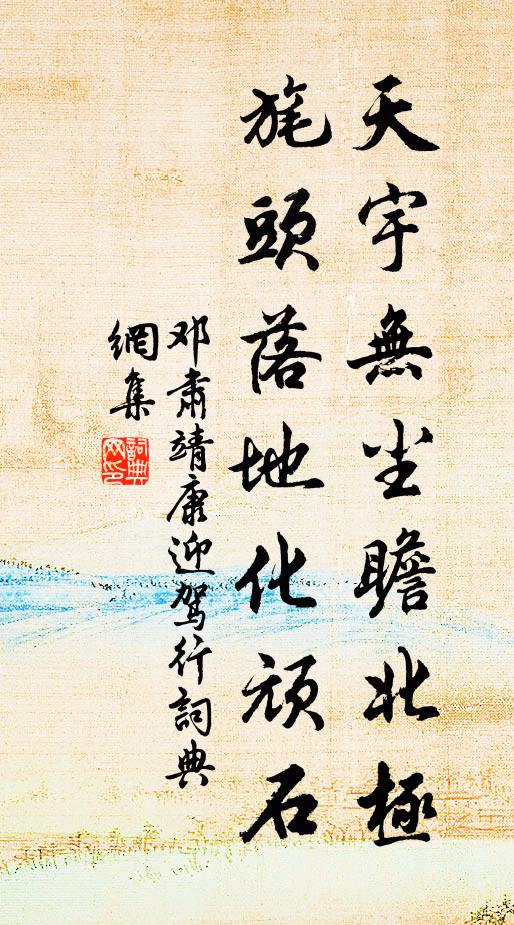 天宇無尘瞻北極
旄頭落地化頑石
邓肅靖康迎駕行詞典
網集
詞典